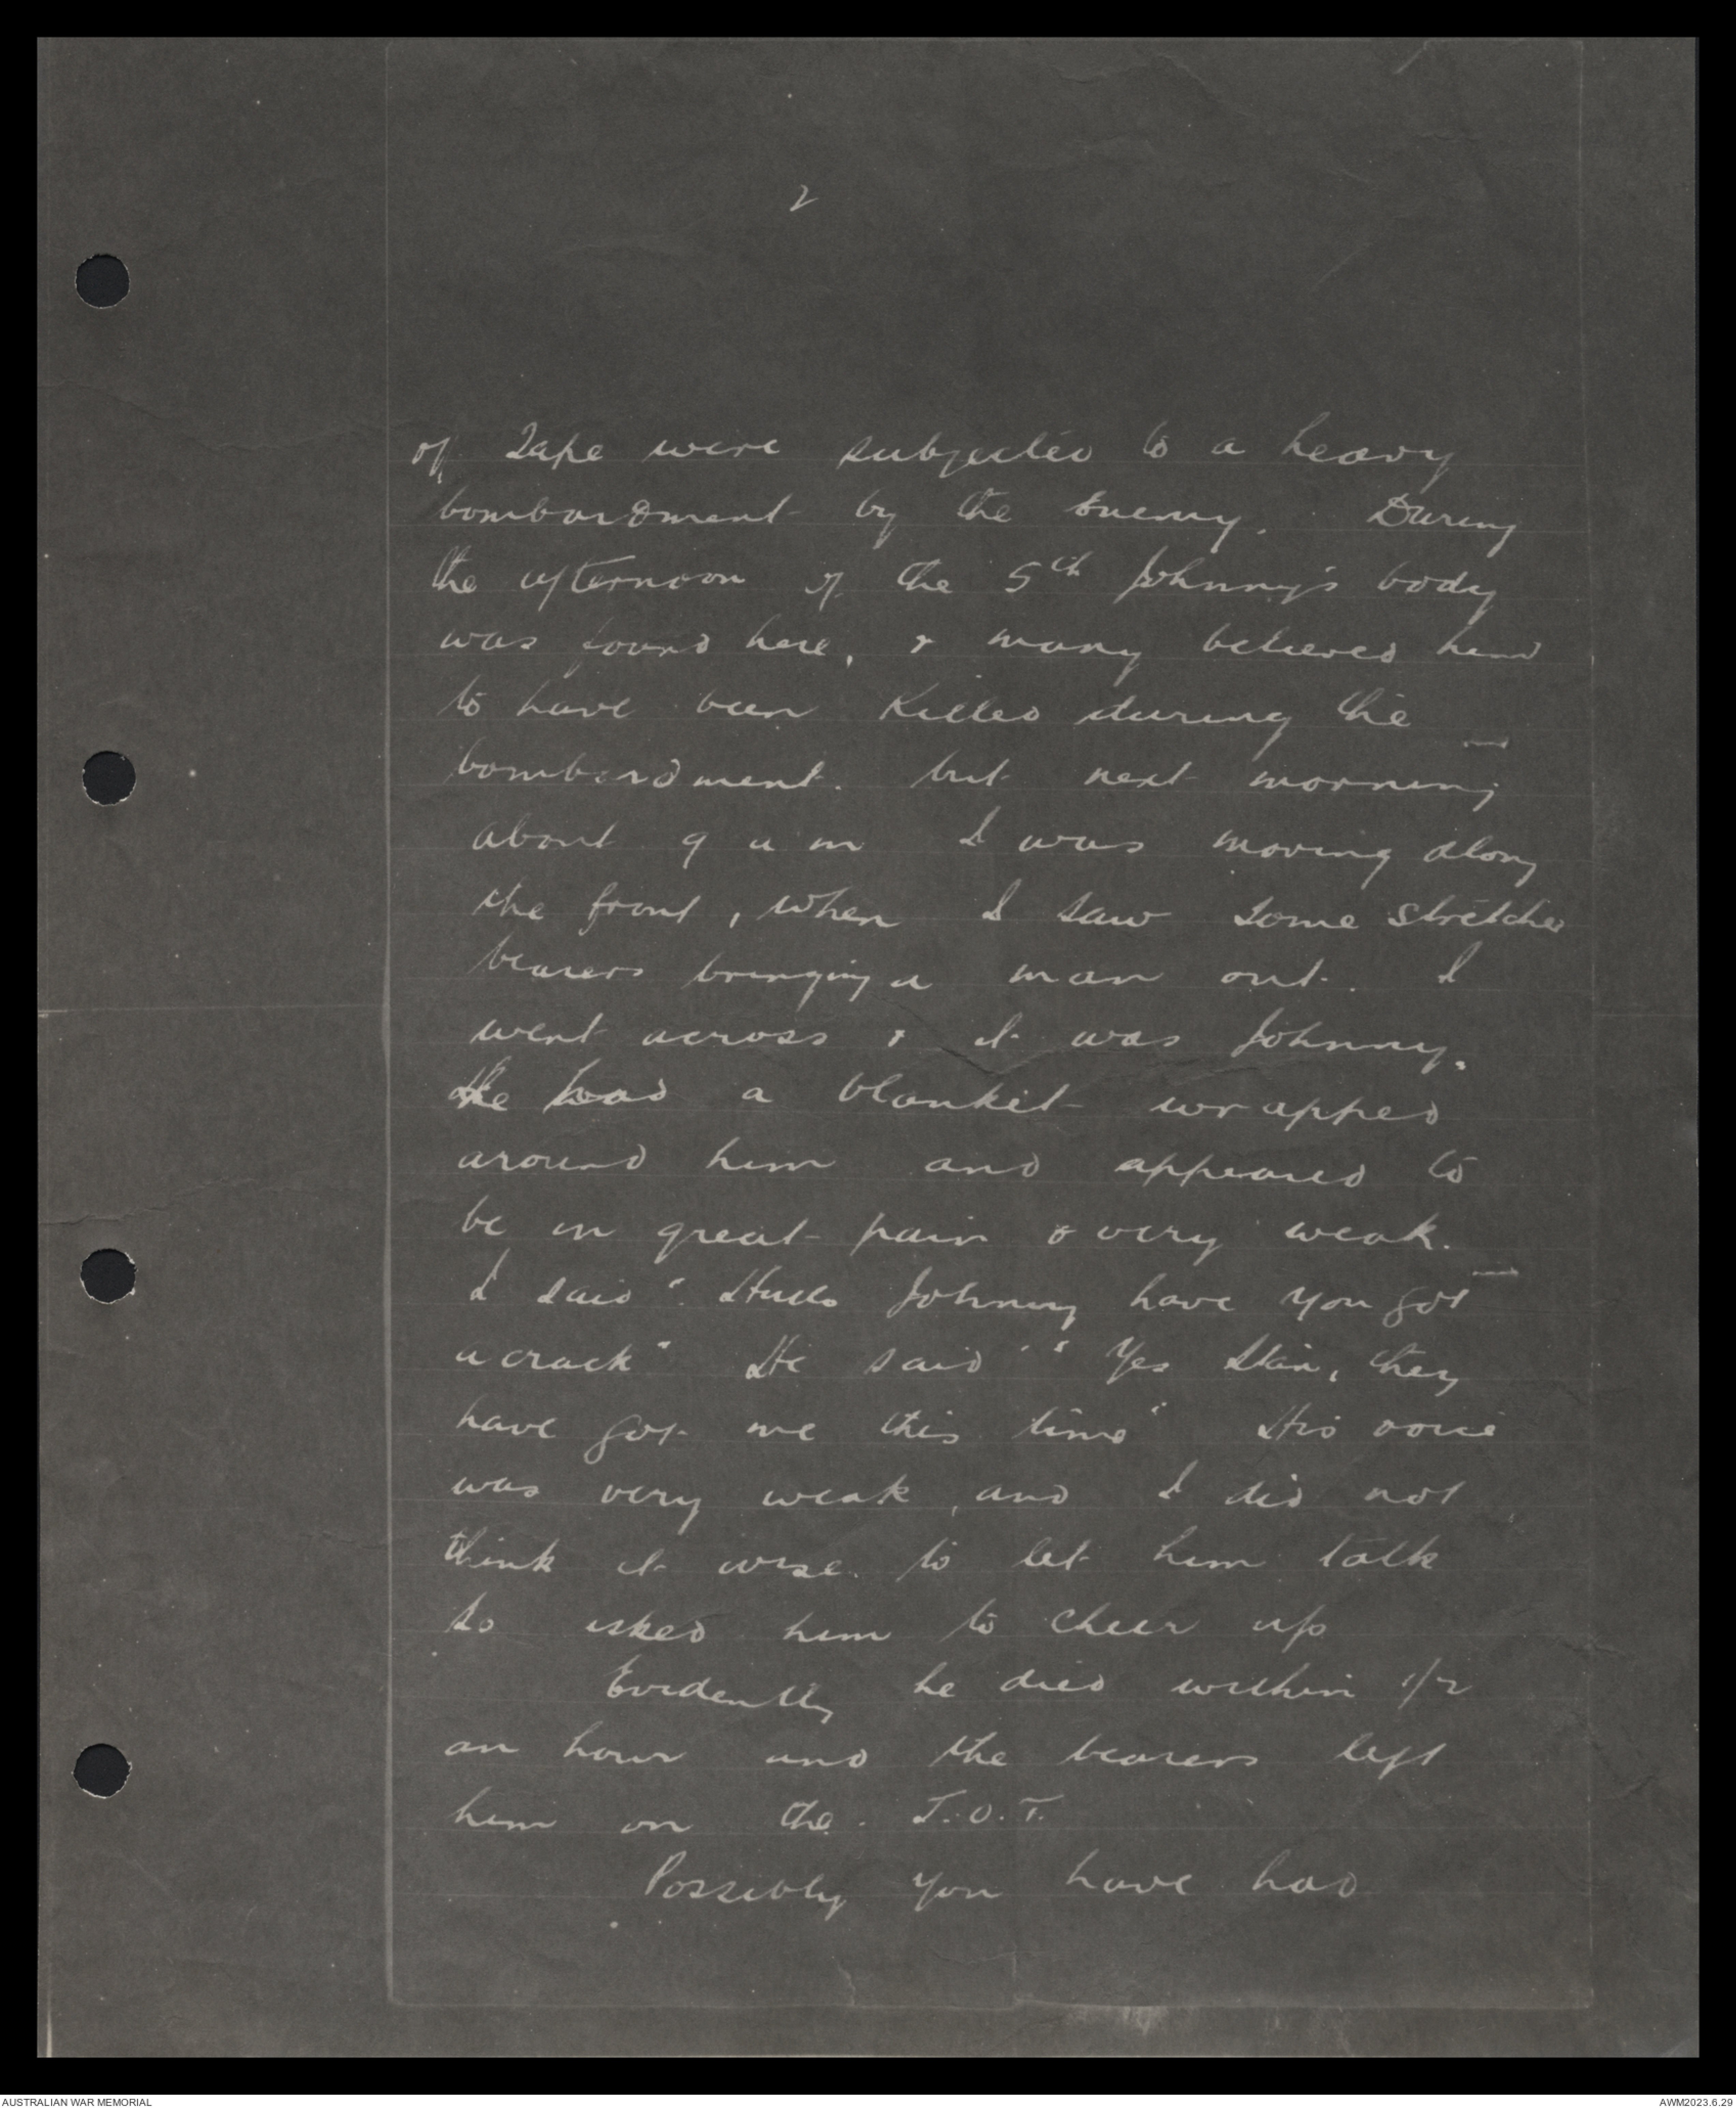 2
of Tape were subjected to a heavy
bombardment by the Enemy. During
the afternoon of the 5th Johnny's body
was found here, & many believed him
to have been Killed during the
bombardment. but next morning
about 9 a m I was moving along
the front, when I saw some stretcher
bearers bringing a man out. I
went across & it was Johnny.
He had a blanket wrapped
around him and appeared to
be in great pain & very weak.
I said "Hullo Johnny have you got
a crack" He said "Yes Stan, they
have got me this time" His voice
was very weak, and I did not
think it wise to let him talk
so asked him to cheer up
Evidently he died within 1/2
an hour and the bearers left
him on the J.O.T.
Possibly you have had
AUSTRALIAN WAR MEMORIAL
AWM2023.6.29